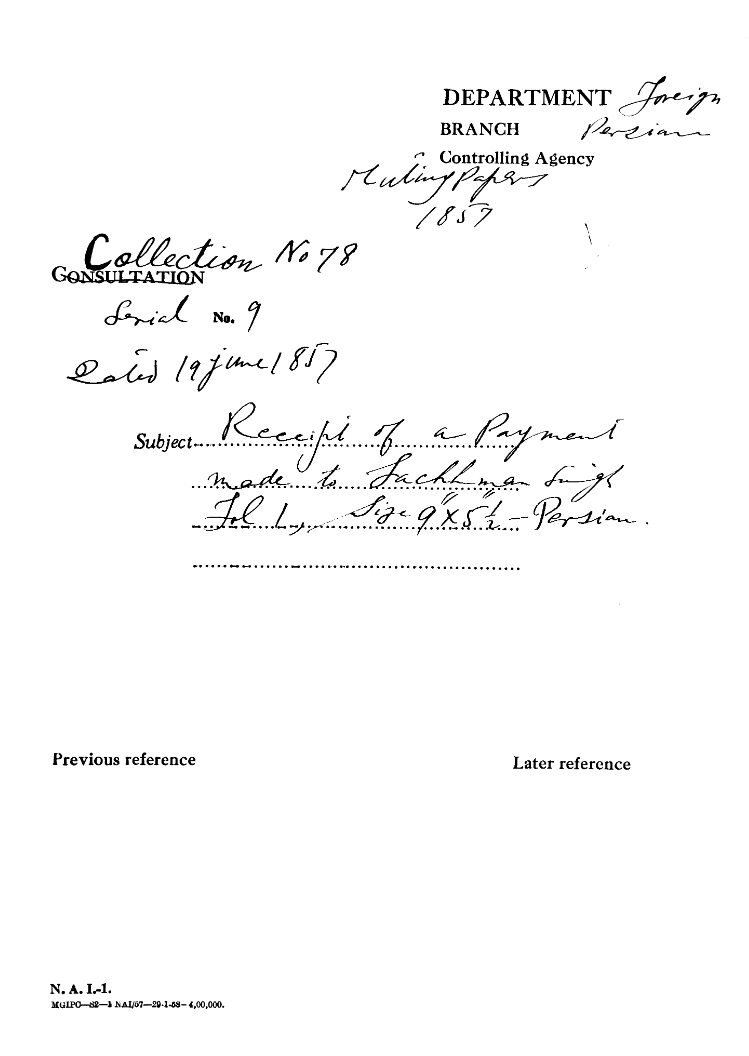 DEPARTMENT Foreign
BRANCH Persian
Controlling Agency
Mutiny Papers
1857
Collection No 78
CONSULTATION
Serial No. 9
Dated 19 june 1857
Subject Receipt of a Payment
made to Lachhman Singh
Fol 1, Size 9" X 5 1/2" - Persian.
Previous reference
Later reference
N. A. I.-1.
MGIPC—S2—1 NAI/57—29-1-58— 4,00,000.